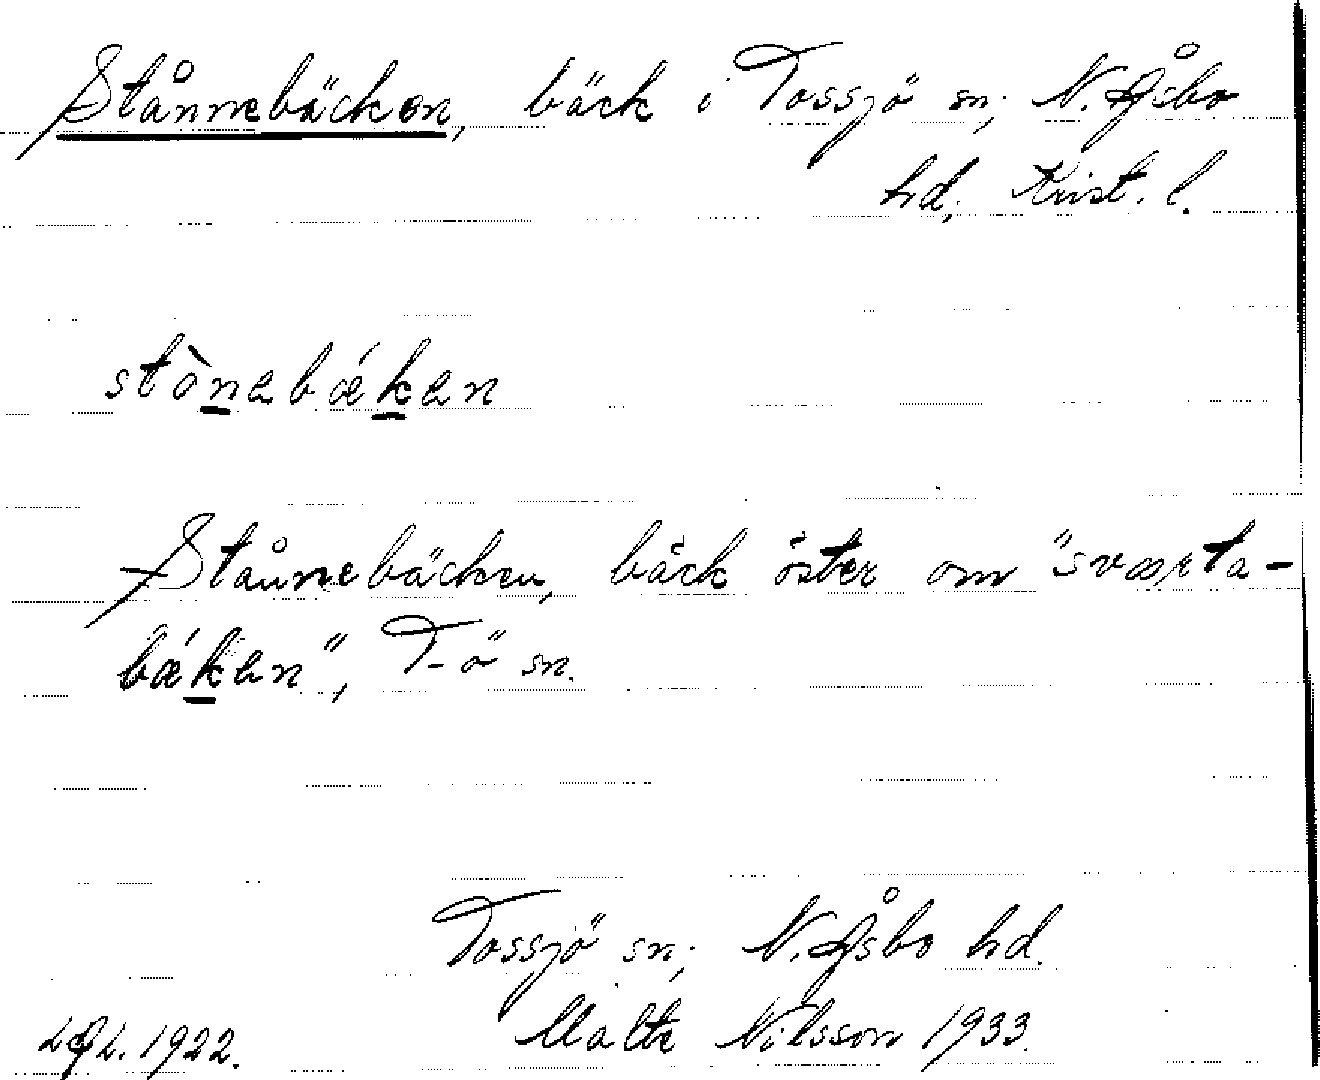 Stånnebäcken, bäck i Tossjö sn; N. Åsbo
hd; Krist. l.
stònebǽken
Stånnebäcken, bäck öster om "sværta-
bǽken", T-ö sn.
Tossjö sn; N. Åsbo hd.
LAL. 1922. Malte Nilsson 1933.